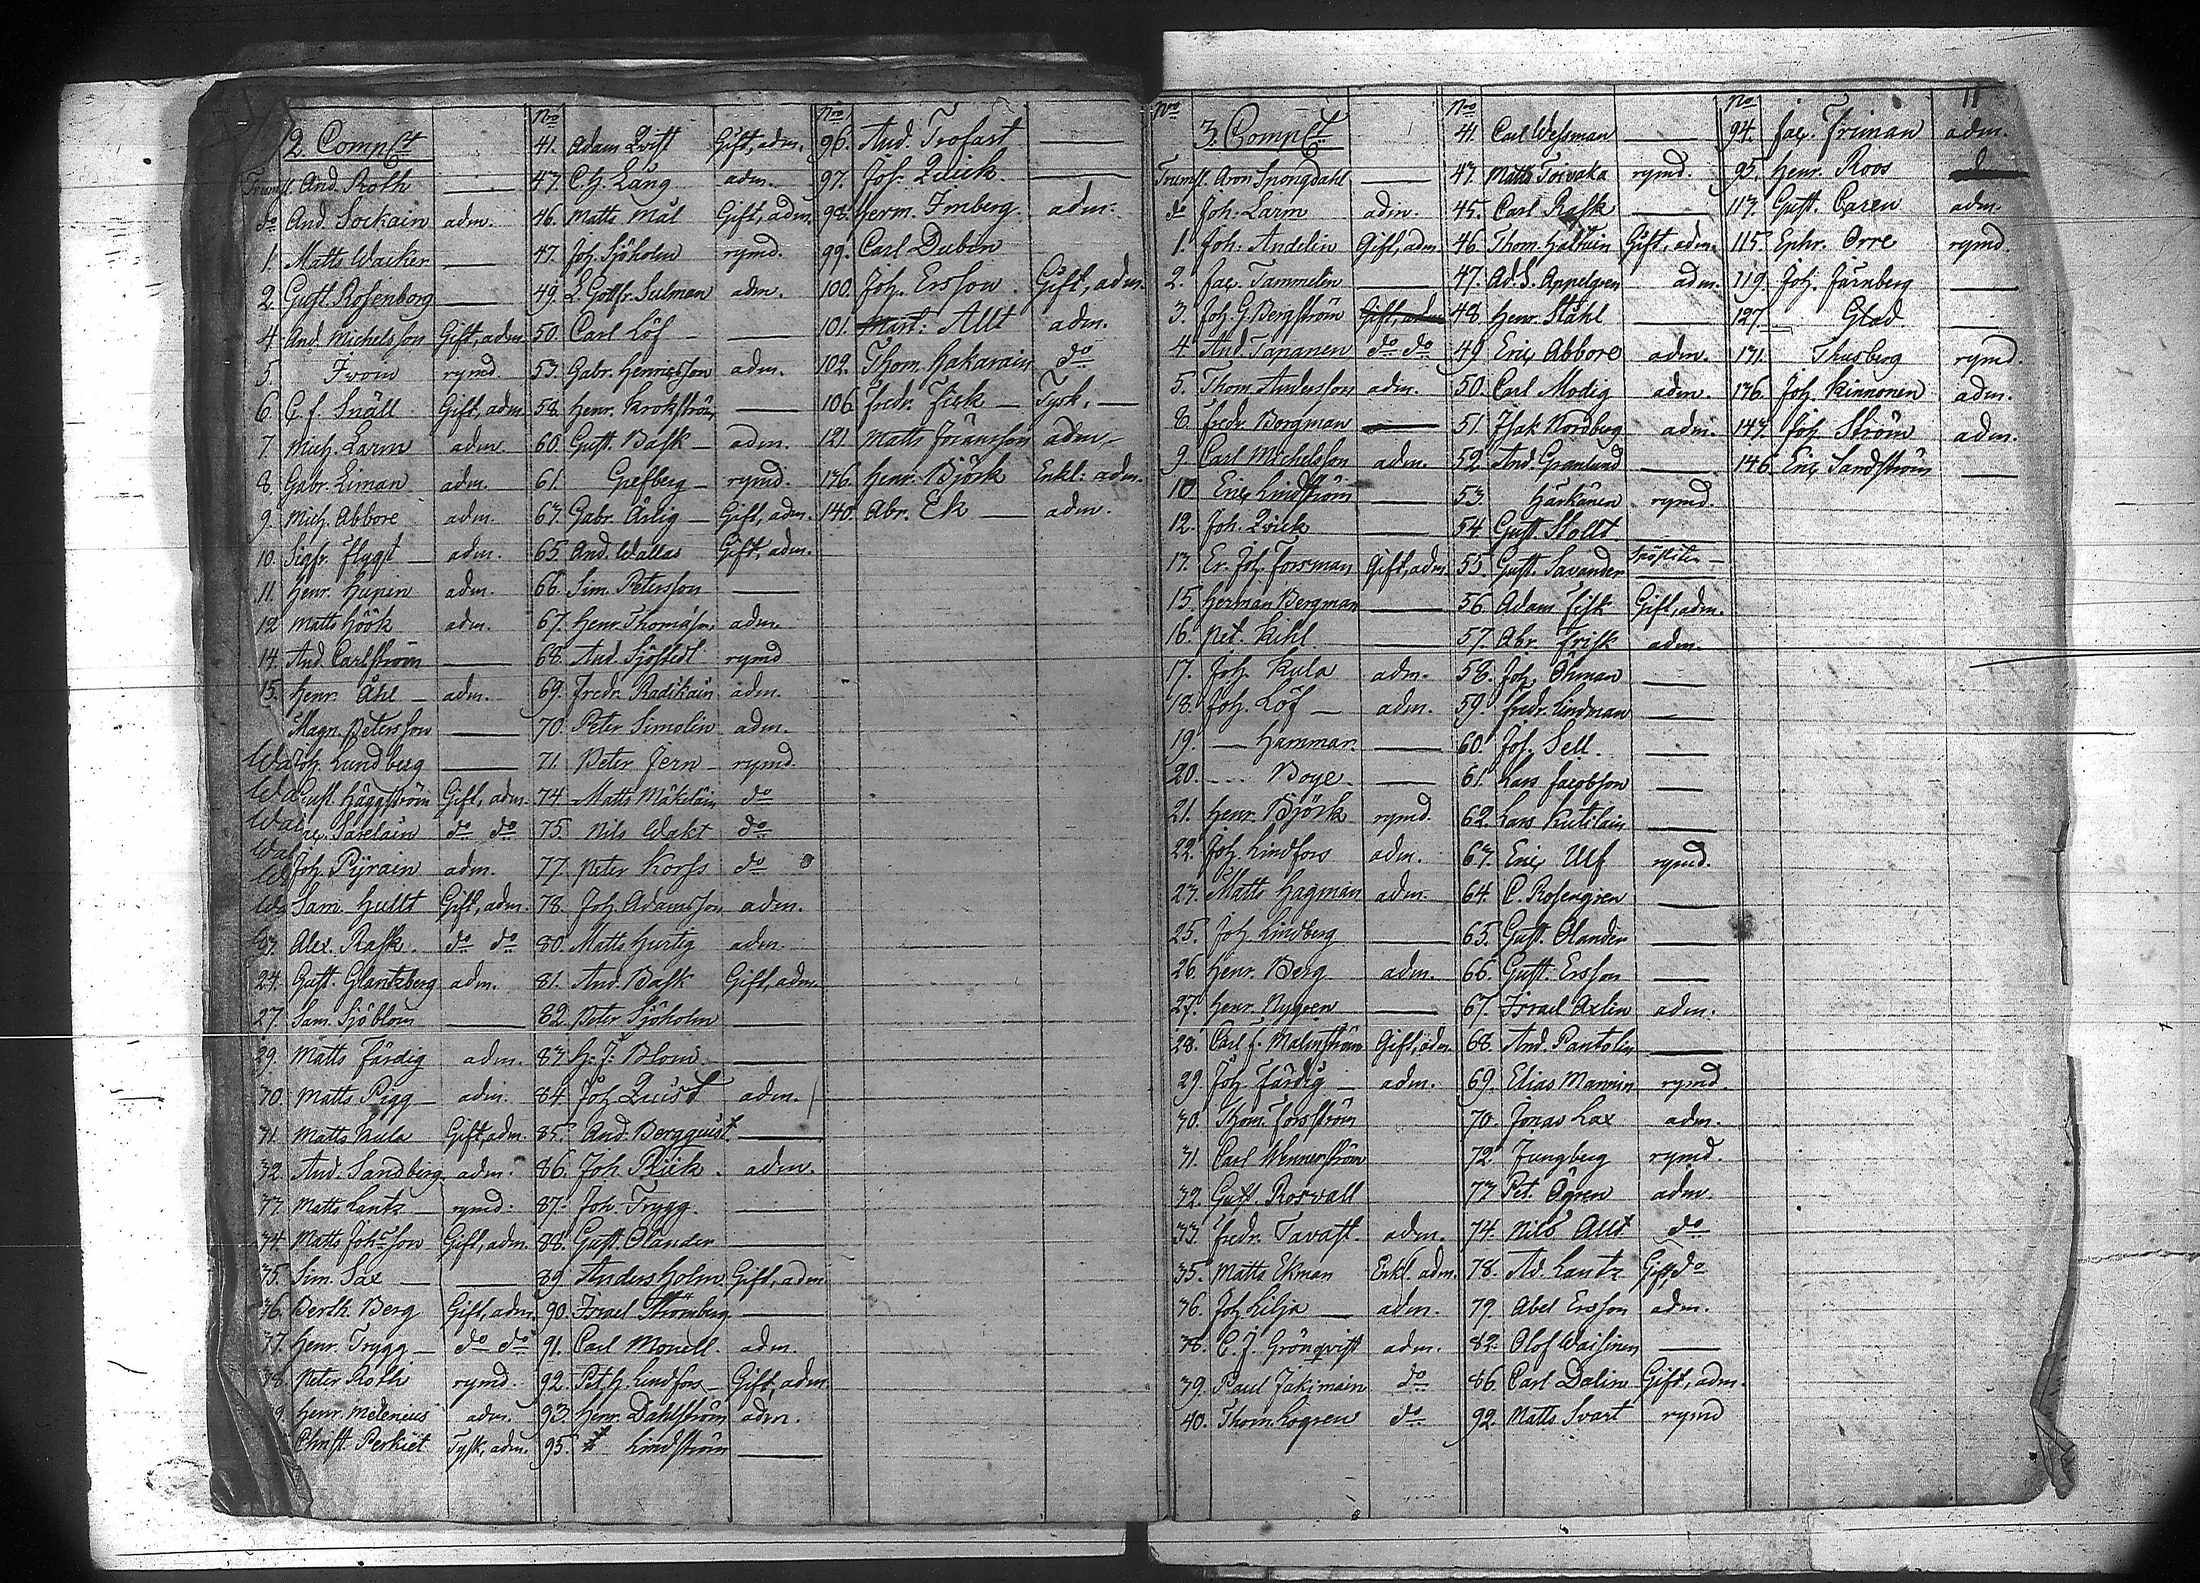 2. Comp:t
Trumsl. And. Roth ——
do And. Sockain adm.
1. Matts Wacker ——
2. Gust. Rosenborg ——
4. And. Michelsson Gift, adm.
5. From rymd.
6. C. F. Snäll Gift, adm.
7. Mich. Larm adm.
8. Gabr. Liman adm.
9. Mich. Abbore adm.
10. Sigfr. Flygt adm.
11. Henr. Hupin adm.
12. Matts Höök adm.
14. And. Carlström ——
15. Henr. Åhl adm.
Magn. Petersson ——
Joh. Lundberg ——
Gust. Häggström Gift, adm.
Sarelain do do
Joh. Pyrain adm.
Sam. Hullt Gift, adm.
Alex. Rask do do
24. Gust. Glantzberg adm.
27. Sam. Sjöblom ——
29. Matts Färdig adm.
30. Matts Pigg adm.
31. Matts Kula Gift, adm.
32. And. Sandberg adm.
33. Matts Lantz rymd.
34. Matts Joh:sson Gift, adm.
35. Sim. Sax ——
36. Berth. Berg Gift, adm.
37. Henr. Trygg do do
38. Peter Roth rymd.
39. Henr. Melenius adm.
Christ. Perkiet Tysk, adm.
No
41. Adam Qvist Gift, adm.
43. C. H. Lång adm.
46. Matts Mål Gift, adm.
47. Joh. Sjöholm rymd.
49. L. Gottfr. Sulman adm.
50. Carl Löf ——
53. Gabr. Henricsson adm.
58. Henr. Krokström ——
60. Gust. Bask adm.
61. Grefberg rymd.
63. Gabr. Ärlig Gift, adm.
65. And. Wallas Gift, adm.
66. Sim. Petersson ——
67. Henr. Thomasson adm.
68. And. Sjöstedt rymd
69. Fredr. Radikain adm.
70. Peter Simolin adm.
71. Peter Jern rymd.
74. Matts Mäkeläin do
75. Nils Wakt do
77. Peter Korss do
78. Joh. Adamsson adm.
80. Matts Hurtig adm.
81. And. Bask Gift, adm.
82. Peter Sjöholm ——
83. H. J. Blom ——
84. Joh. Quist adm.
85. And. Bergquist ——
86. Joh. Rück adm.
87. Joh. Trygg ——
88. Gust. Olander ——
89. Anders Holm Gift, adm.
90. Israel Strömberg ——
91. Carl Monell adm.
92. Pet. H. Lindfors Gift, adm.
93. Henr. Dahlström adm.
95. Lindström ——
No
96. And. Trofast ——
97. Joh. Quick ——
98. Herm. Imberg adm.
99. Carl Dubin
100. Joh. Ersson Gift, adm.
101. Mart: Allt adm.
102. Thom. Hakarain do
106. Fredr. Fick Tysk, —
121. Matts Jöransson adm.
136. Henr. Björk Enkl: adm.
140. Abr. Ek adm.
Nro
3. Comp:t
Trumsl. Aron Spongdahl ——
do Joh. Larm adm.
1. Joh. Andelin Gift, adm.
2. Jac. Tammelin ——
3. Joh. G. Bergström Gift, adm
4. And. Tapanen do do
5. Thom. Andersson adm.
8. Fredr. Borgman ——
9. Carl Michelsson adm.
10. Eric Lindström ——
12. Joh. Quick ——
13. Er. Joh. Forsman Gift, adm.
15. Herman Bergman ——
16. Pet. Kihl ——
17. Joh. Kula adm.
18. Joh. Löf — adm.
19. — Hammar ——
20. Boye ——
21. Henr. Björk rymd.
22. Joh. Lindfors adm.
23. Matts Hagman adm.
25. Joh. Lindberg ——
26. Henr. Berg adm.
27. Henr. Nygren ——
28. Carl J. Malmström Gift, adm.
29. Joh. Färdig adm.
30. Thom. Forsström
31. Carl Wennerström
32. Gust. Rosvall
33. Fredr. Tavast adm.
35. Matts Ekman Enkl. adm.
36. Joh. Lilja adm.
38. C. J. Grönqvist adm.
39. Paul Jakimain do
40. Thom. Logren do
Nro
41. Carl Wessman ——
43. Matts Toivaka rymd.
45. Carl Rask ——
46. Thom. Halttuin Gift, adm.
47. Ad. S. Appelgren adm.
48. Henr. Ståhl ——
49. Eric Abbore adm.
50. Carl Modig adm.
51. Isak Nordberg adm.
52. And. Granlund ——
53. Härkänen rymd.
54. Gust. Stollt
55. Gust. Savander ——
56. Adam Fisk Gift, adm.
57. Abr. Frisk adm.
58. Joh. Öhman ——
59. Fredr. Lindman ——
60. Joh. Sell ——
61. Lars Jacobson ——
62. Lars Kutilain ——
63. Eric Ulf rymd.
64. C. Rosengren ——
65. Gust. Olander ——
66. Gust. Ersson ——
67. Israel Axlin adm.
68. And. Pantolin ——
69. Elias Mannin rymd.
70. Jonas Lax adm.
72. Jungberg rymd.
73. Pet. Ögren adm.
74. Nils Allt do
78. Ad. Lantz Gift, do
79. Abel Ersson adm.
82. Olof Waisinen ——
86. Carl Dalin Gift, adm.
92. Matts Svart rymd
No
11
94. Jac. Friman adm.
95. Henr. Roos
113. Gust. Caren adm.
115. Ephr. Orre rymd.
119. Joh. Järnberg ——
127. Glad ——
131. Thusberg rymd.
136. Joh. Kinnonen adm.
143. Joh. Ström adm.
146. Eric Sandström ——